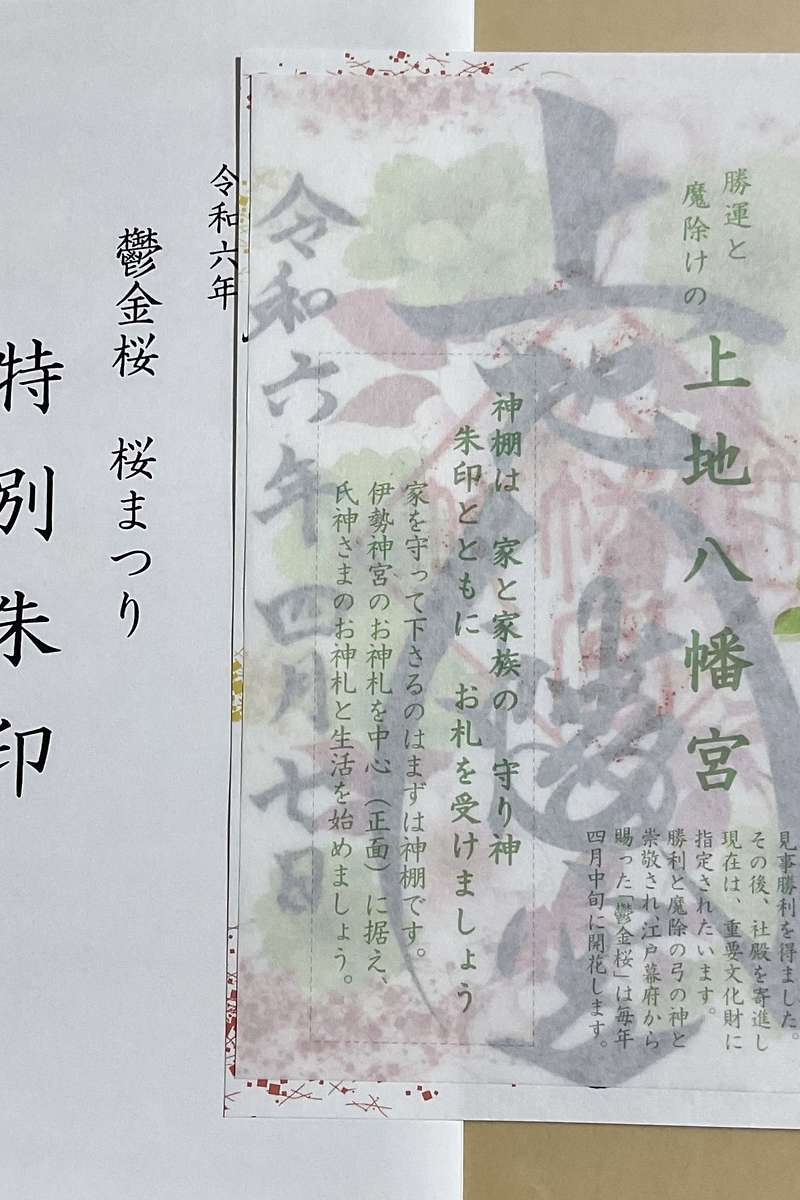 勝運と
魔除けの
上地八幡宮
見事勝利を得ました。
その後、社殿を寄進し
現在は、重要文化財に
指定されたいます。
勝利と魔除の弓の神と
崇敬され、江戸幕府から
賜った「鬱金桜」は毎年
四月中旬に開花します。
神棚は 家と家族の 守り神
朱印とともに お札を受けましょう
家を守って下さるのはまずは神棚です。
伊勢神宮のお神札を中心（正面）に据え、
氏神さまのお神札と生活を始めましょう。
上地八幡宮
令和六年四月七日
令和六年
鬱金桜 桜まつり
特別朱印